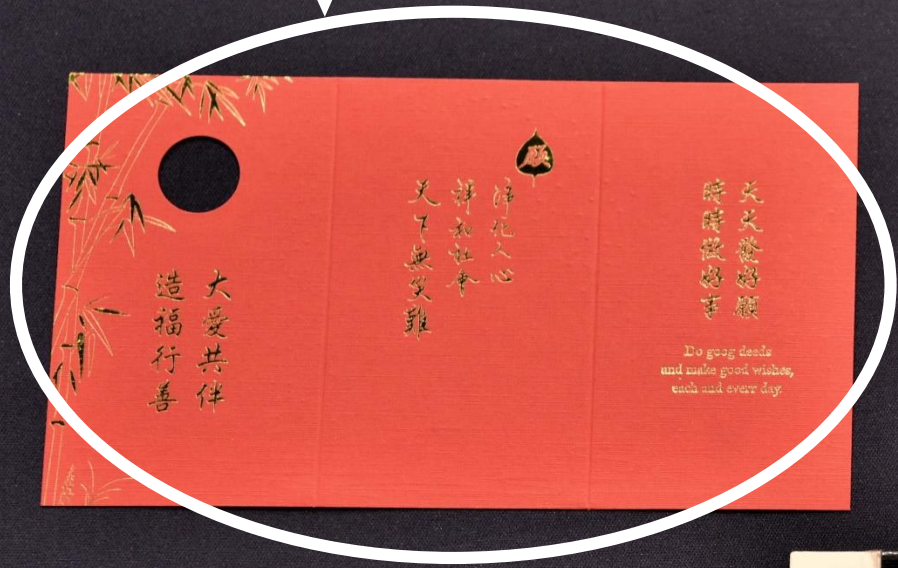 大愛共伴
造福行善
願
淨化人心
祥和社會
天下無災難
天天發好願
時時做好事
Do goog deeds
and make good wishes,
each and everr day.